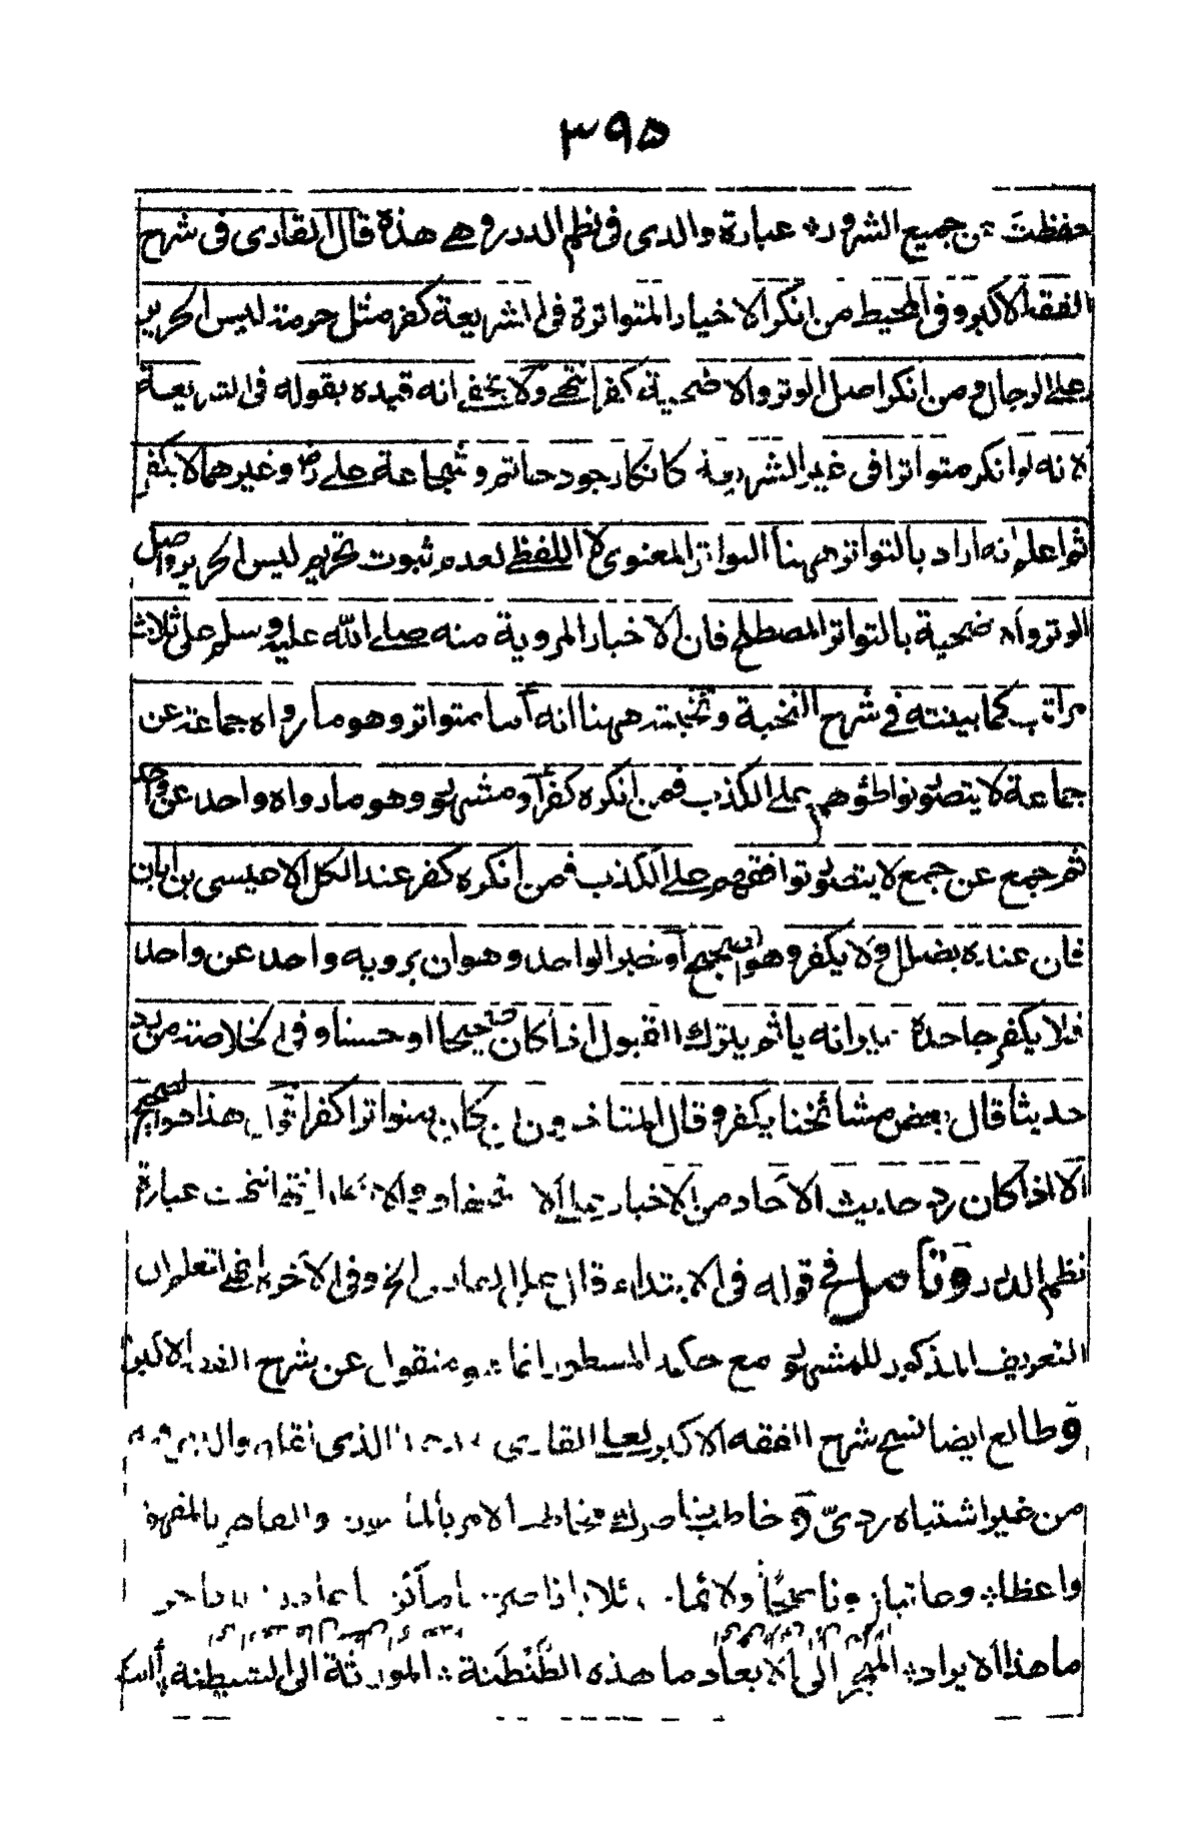 ٣٩٥
حفظت من جميع الشرور عبارة والدى فى نظم الدرر وهے هذة قال القارى فى شرح
الفقه الاكبر وفى المحيط من انكر الاخبار المتواترة فى الشريعة كفر مثل حرمة لبس الحرير
على الرجال ومن انكر اصل الوتر والاضحية كفر انتهى ولا يخفى انه قيده بقوله فى الشريعة
لانه لو انكر متواترا فى غير الشريعة كانكار جود حاتم وشجاعة على رض وغيرهما لا يكفر
ثم اعلم انه اراد بالتواتر ههنا التواتر المعنوى لا اللفظى لعدم ثبوت تحريم لبس الحرير واصل
الوتر والاضحية بالتواتر المصطلح فان الاخبار المروية منه صلى الله عليه وسلم على ثلاث
مراتب كما بينته فى شرح النخبة ونخبته ههنا انه اما متواتر وهو ما رواه جماعة عن
جماعة لا يتصور تواطؤهم على الكذب فمن انكره كفر او مشهور وهو ما رواه واحد عن واحد
ثم جمع عن جمع لا يتصور توافقهم على الكذب فمن انكره كفر عند الكل الا عيسى بن ابان
فان عنده يضلل ولا يكفر وهو الصحيح او خبر الواحد وهو ان يرويه واحد عن واحد
فلا يكفر جاحده غير انه ياثم بترك القبول اذا كان صحيحا او حسنا وفى الخلاصة من رد
حديثا قال بعض مشائخنا يكفر وقال المتاخرون ان كان متواترا كفر اقول هذا هو الصحيح
الا اذا كان رد حديث الاحاد من الاخبار على الا انتهى انتهت عبارة
نظم الدرر وتأمل فى قوله فى الابتداء قال على القارى الخ وفى الآخر انتهى لتعلم ان
التعريف المذكور للمشهور مع حكمه المسطور انما هو منقول عن شرح الفقه الاكبر
وطالع ايضا نسخ شرح الفقه الاكبر لعلى القارى الذى نقله والدى
من غير اشتباه ردىّ وخاطب ناصرك مخاطبة الامر بالمأمور والقاهر بالمقهور
واعظا
ما هذا الايراد المنجر الى الابعاد ما هذه الطَّنْطَنة الموروثة الى الشيطنة